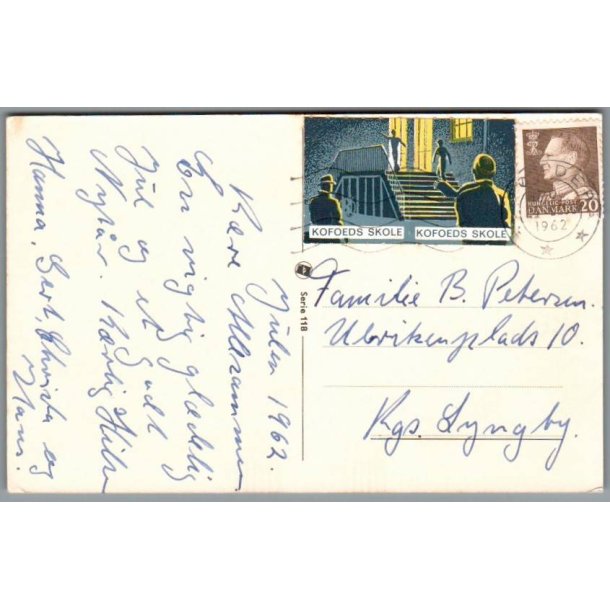 Julen 1962.
Kære Allesammen
En rigtig glædelig
Jul og et Godt
Nytår. Kærlig Hilsen
Hanna, Gert, Christa og
Hans.
KOFOEDS SKOLE KOFOEDS SKOLE
KONGELIG POST
DANMARK 20
1962
Serie 118
Familie B. Petersen.
Ulrikenplads 10.
Kgs. Lyngby.